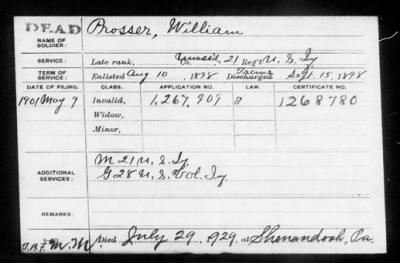 DEAD
Prosser, William
NAME OF SOLDIER:
SERVICE:
Late rank, Co. 21 Reg't U. S. Iy.
TERM OF SERVICE:
Enlisted Aug 10, 1898 Discharged Sept. 15, 1898
DATE OF FILING. CLASS. APPLICATION NO. LAW. CERTIFICATE NO.
1901 May 9 Invalid, 1,267,909 1268780
Widow,
Minor,
ADDITIONAL SERVICES:
M 21 U. S. Iy.
G 28 U. S. Vol. Iy.
REMARKS:
Died July 29, 1929, at Shenandoah, Pa.